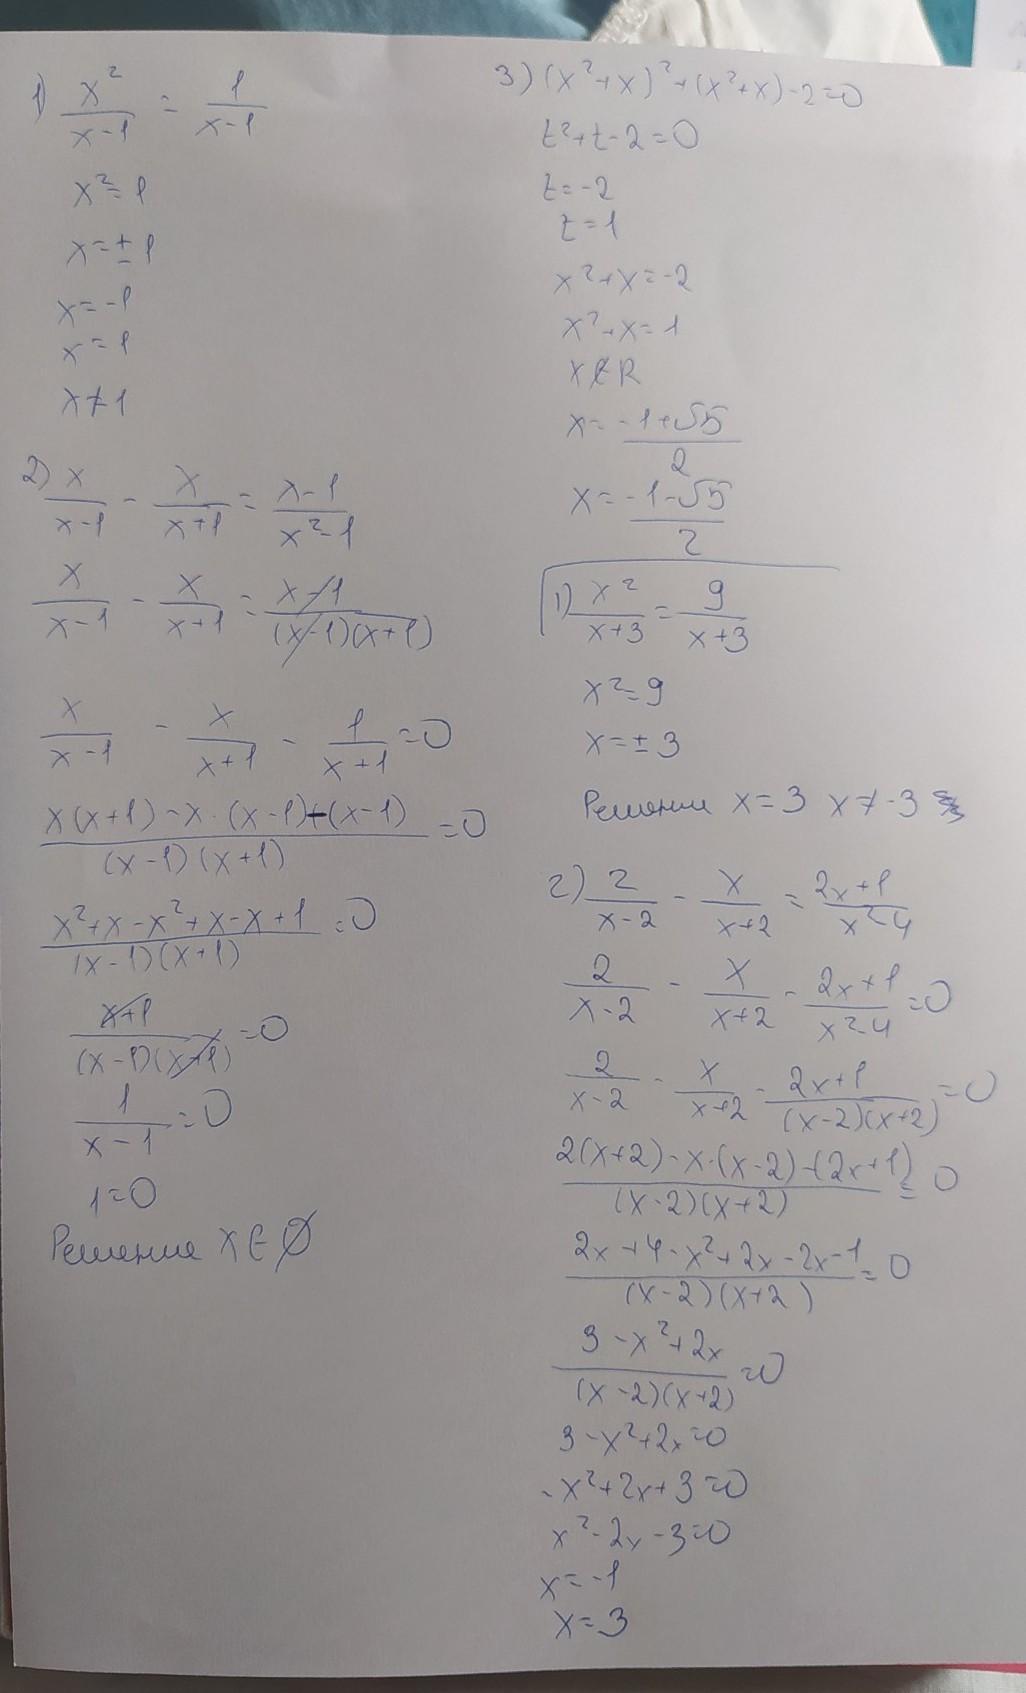 1) x²/(x-1) = 1/(x-1)
x² = 1
x = ± 1
x = -1
x = 1
x ≠ 1
2) x/(x-1) - x/(x+1) = (x-1)/(x²-1)
x/(x-1) - x/(x+1) = (x-1)/((x-1)(x+1))
x/(x-1) - x/(x+1) - 1/(x+1) = 0
(x(x+1) - x·(x-1) - (x-1))/((x-1)(x+1)) = 0
(x²+x-x²+x-x+1)/((x-1)(x+1)) = 0
(x+1)/((x-1)(x+1)) = 0
1/(x-1) = 0
1 = 0
Решение x ∈ ∅
3) (x²+x)²+(x²+x)-2=0
t²+t-2=0
t=-2
t=1
x²+x=-2
x²+x=1
x∉R
x = (-1+√5)/2
x = (-1-√5)/2
1) x²/(x+3) = 9/(x+3)
x²=9
x=±3
Решение x=3 x≠-3
2) 2/(x-2) - x/(x+2) = (2x+1)/(x²-4)
2/(x-2) - x/(x+2) - (2x+1)/(x²-4) = 0
2/(x-2) - x/(x+2) - (2x+1)/((x-2)(x+2)) = 0
(2(x+2)-x·(x-2)-(2x+1))/((x-2)(x+2)) = 0
(2x+4-x²+2x-2x-1)/((x-2)(x+2)) = 0
(3-x²+2x)/((x-2)(x+2)) = 0
3-x²+2x=0
-x²+2x+3=0
x²-2x-3=0
x=-1
x=3